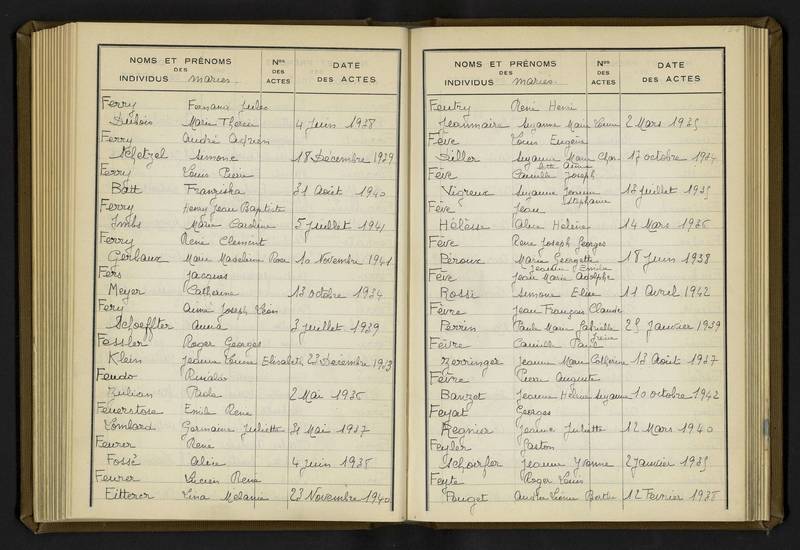 NOMS ET PRÉNOMS
DES
INDIVIDUS mariés
Nos DES ACTES
DATE DES ACTES
Ferry Fernand Jules
Dubois Marie Thérèse 4 Juin 1938
Ferry André Adrien
Schetzel Simone 18 Décembre 1939
Ferry Louis Pierre
Batt Franziska 31 Août 1940
Ferry Henry Jean Baptiste
Imbs Marie Caroline 5 Juillet 1941
Ferry René Clément
Gerbaux Marie Madeleine Rose 10 Novembre 1941
Fers Jacques
Meyer Catherine 13 Octobre 1934
Fery Aimé Joseph Léon
Schoeffter Anna 3 Juillet 1939
Fessler Roger Georges
Klein Jeanne Louise Elisabeth 23 Décembre 1933
Feudo Rinaldo
Zulian Paola 2 Mai 1936
Feuerstoss Emile René
Lombard Germaine Juliette 31 Mai 1937
Feurer René
Fossé Alice 4 Juin 1935
Feurer Lucien René
Eitterer Lina Mélanie 23 Novembre 1940
NOMS ET PRÉNOMS
DES
INDIVIDUS mariés
Nos DES ACTES
DATE DES ACTES
Feutry René Henri
Jeanmaire Suzanne Marie Louise 2 Mars 1935
Fève Louis Eugène
Diller Suzanne Marie 17 Octobre 1934
Fève Camille Joseph
Vigreux Suzanne Jeanne 13 Juillet 1935
Stéphanie
Fève Jean
Hélèsse Alice Hélène 14 Mars 1936
Fève René Joseph Georges
Béroux Marie Georgette 18 Juin 1938
Jeanne Emilie
Fève Jean Marie Adolphe
Rossi Simone Elise 11 Avril 1942
Fèvre Jean François Claude
Perrin Paule Marie Gabrielle 25 Janvier 1939
Irène
Fèvre Camille Paul
Zerringer Jeanne Marie Catherine 13 Août 1937
Fèvre Pierre Auguste
Bauzet Jeanne Hélène Suzanne 10 Octobre 1942
Feyat Georges
Regnier Jeanne Juliette 12 Mars 1940
Feyler Gaston
Schoerfer Jeanne Yvonne 2 Janvier 1935
Feyte Roger Louis
Pouget Berthe 12 Février 1938